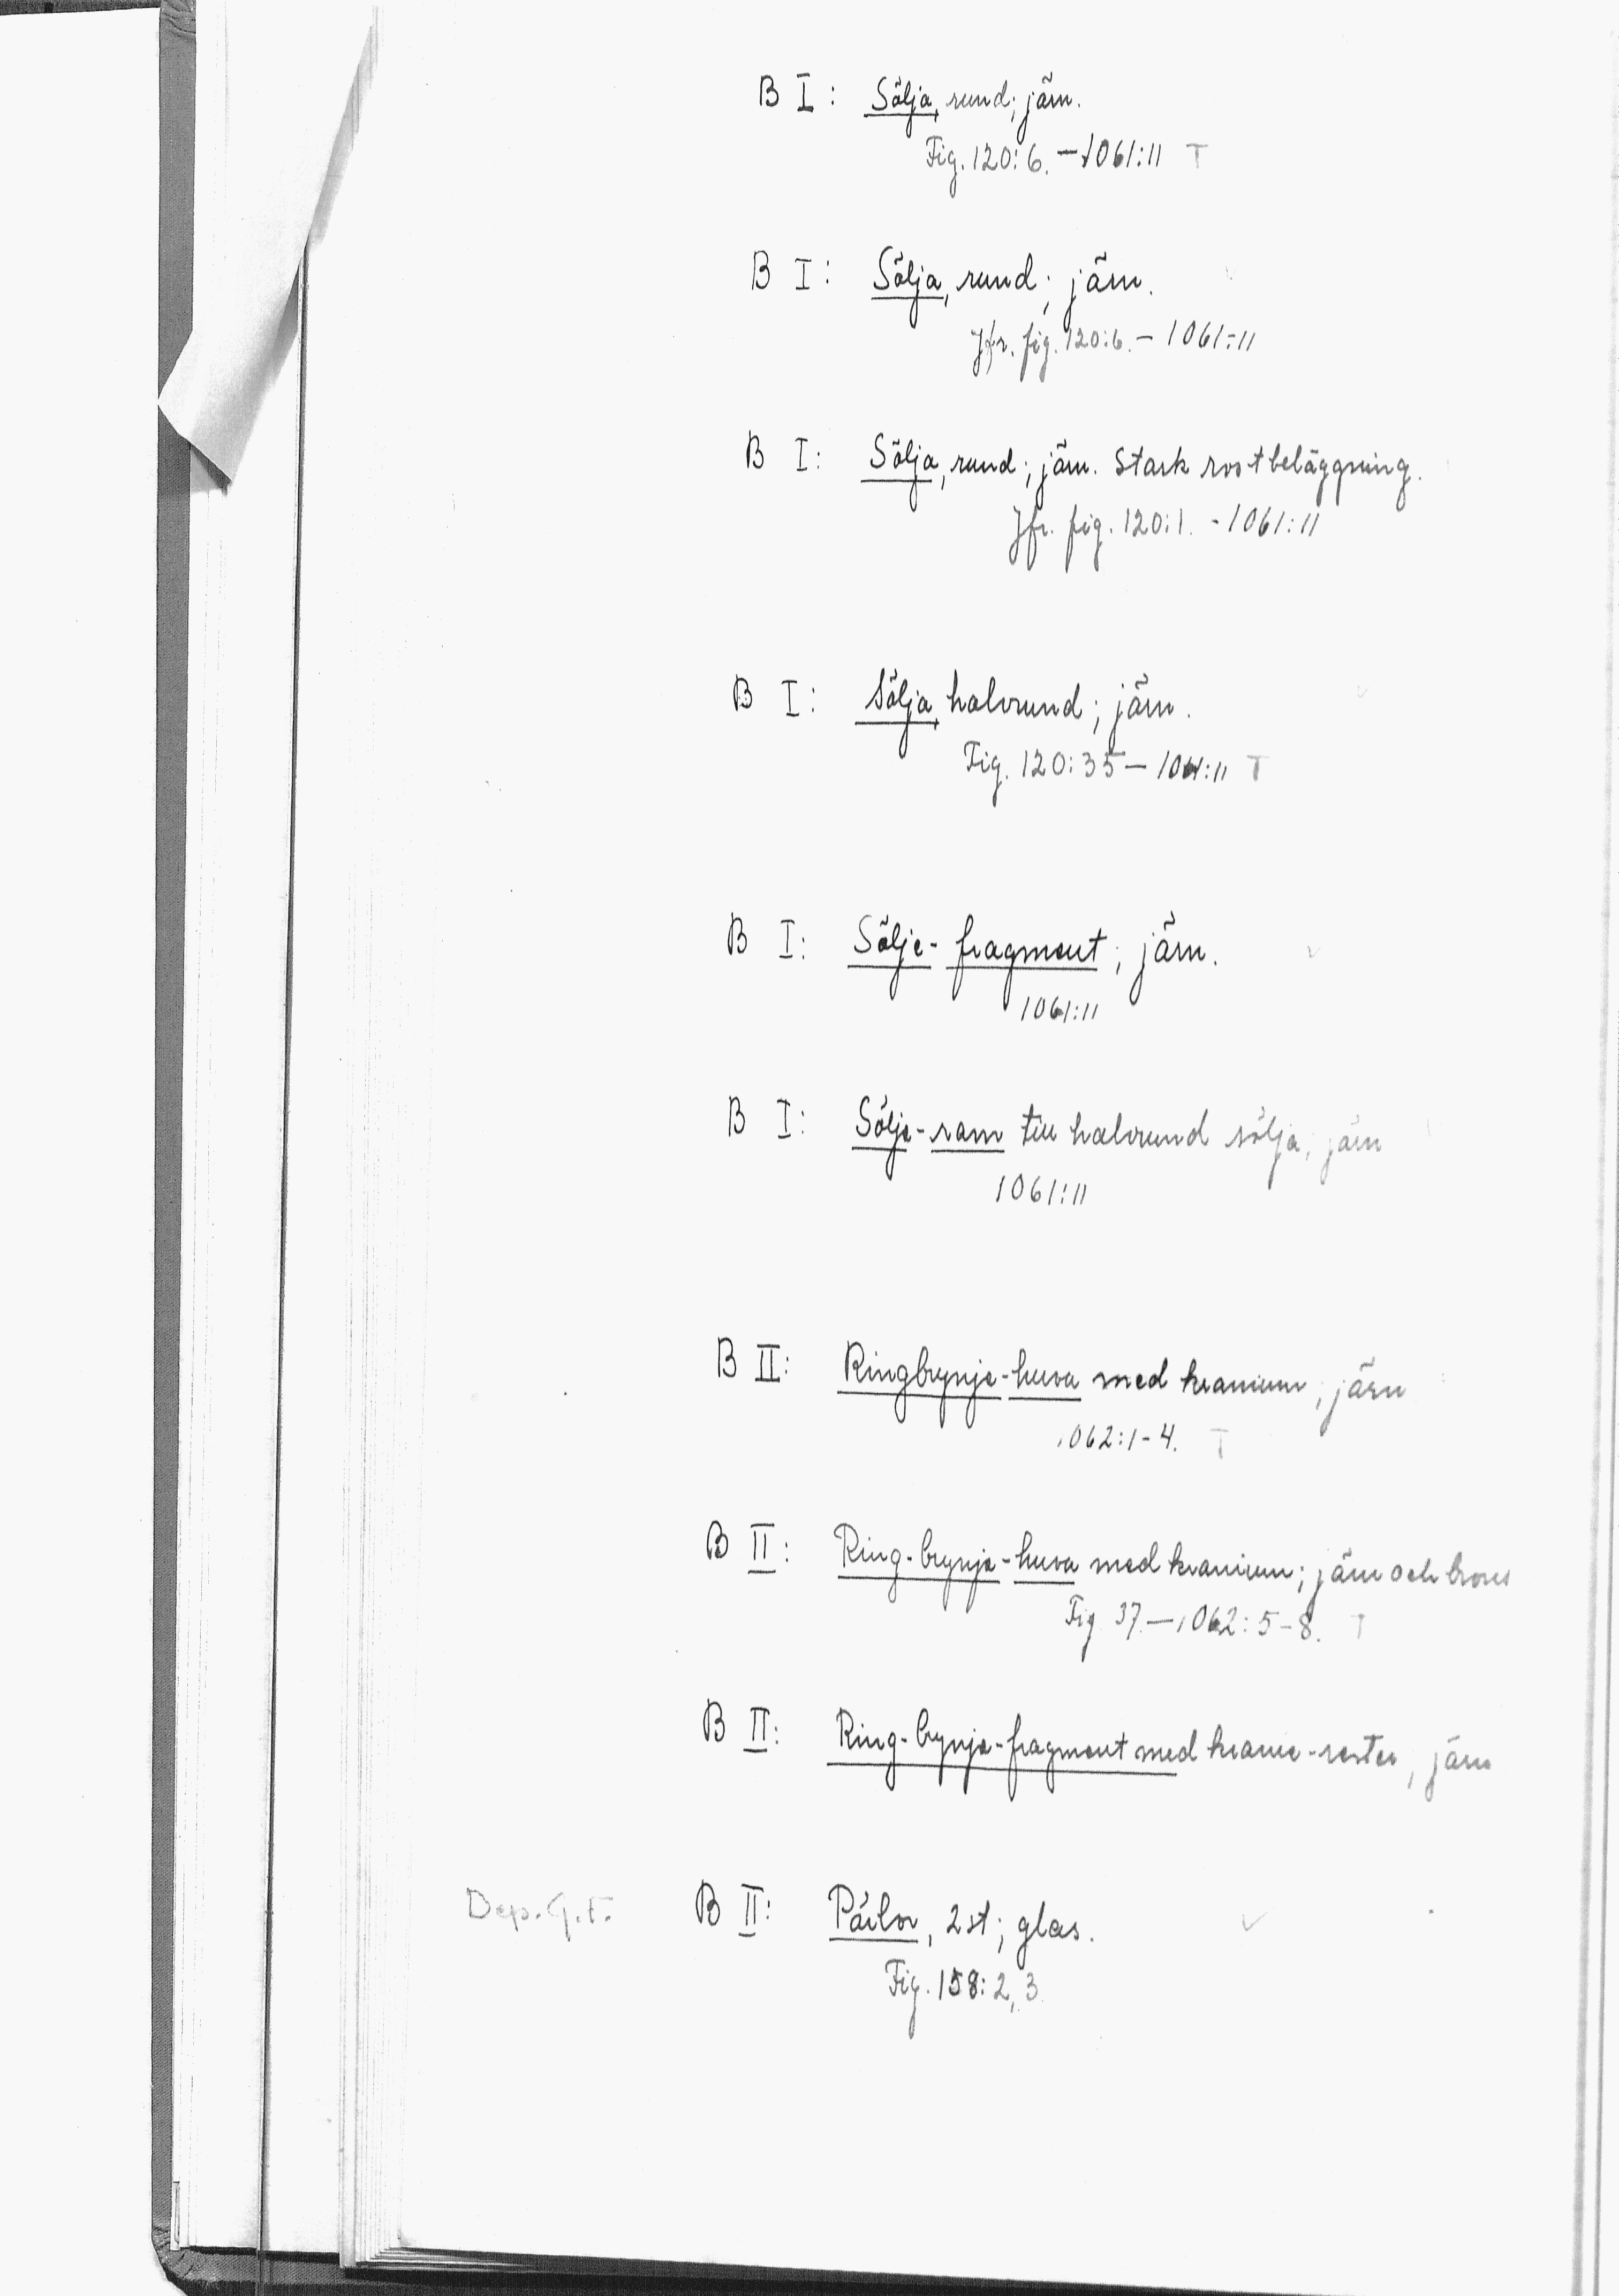 B I: Sölja, rund; järn.
Fig. 120:6. — 1061:11 T
B I: Sölja, rund; järn.
Jfr. fig. 120:6. — 1061:11
B I: Sölja, rund; järn. Stark rostbeläggning.
Jfr. fig. 120:1. - 1061:11
B I: Sölja, halvrund; järn.
Fig. 120:35 — 1061:11 T
B I: Sölje-fragment; järn.
1061:11
B I: Sölje-ram till halvrund sölja; järn
1061:11
B II: Ringbrynje-huva med kranium; järn
1062:1-4. T
B II: Ring-brynje-huva med kranium; järn och brons
Fig 37. — 1062:5-8. T
B II: Ring-brynje-fragment med kranie-rester, järn
Dep. G.F. B II: Pärlor, 2 st; glas.
Fig. 158:2,3